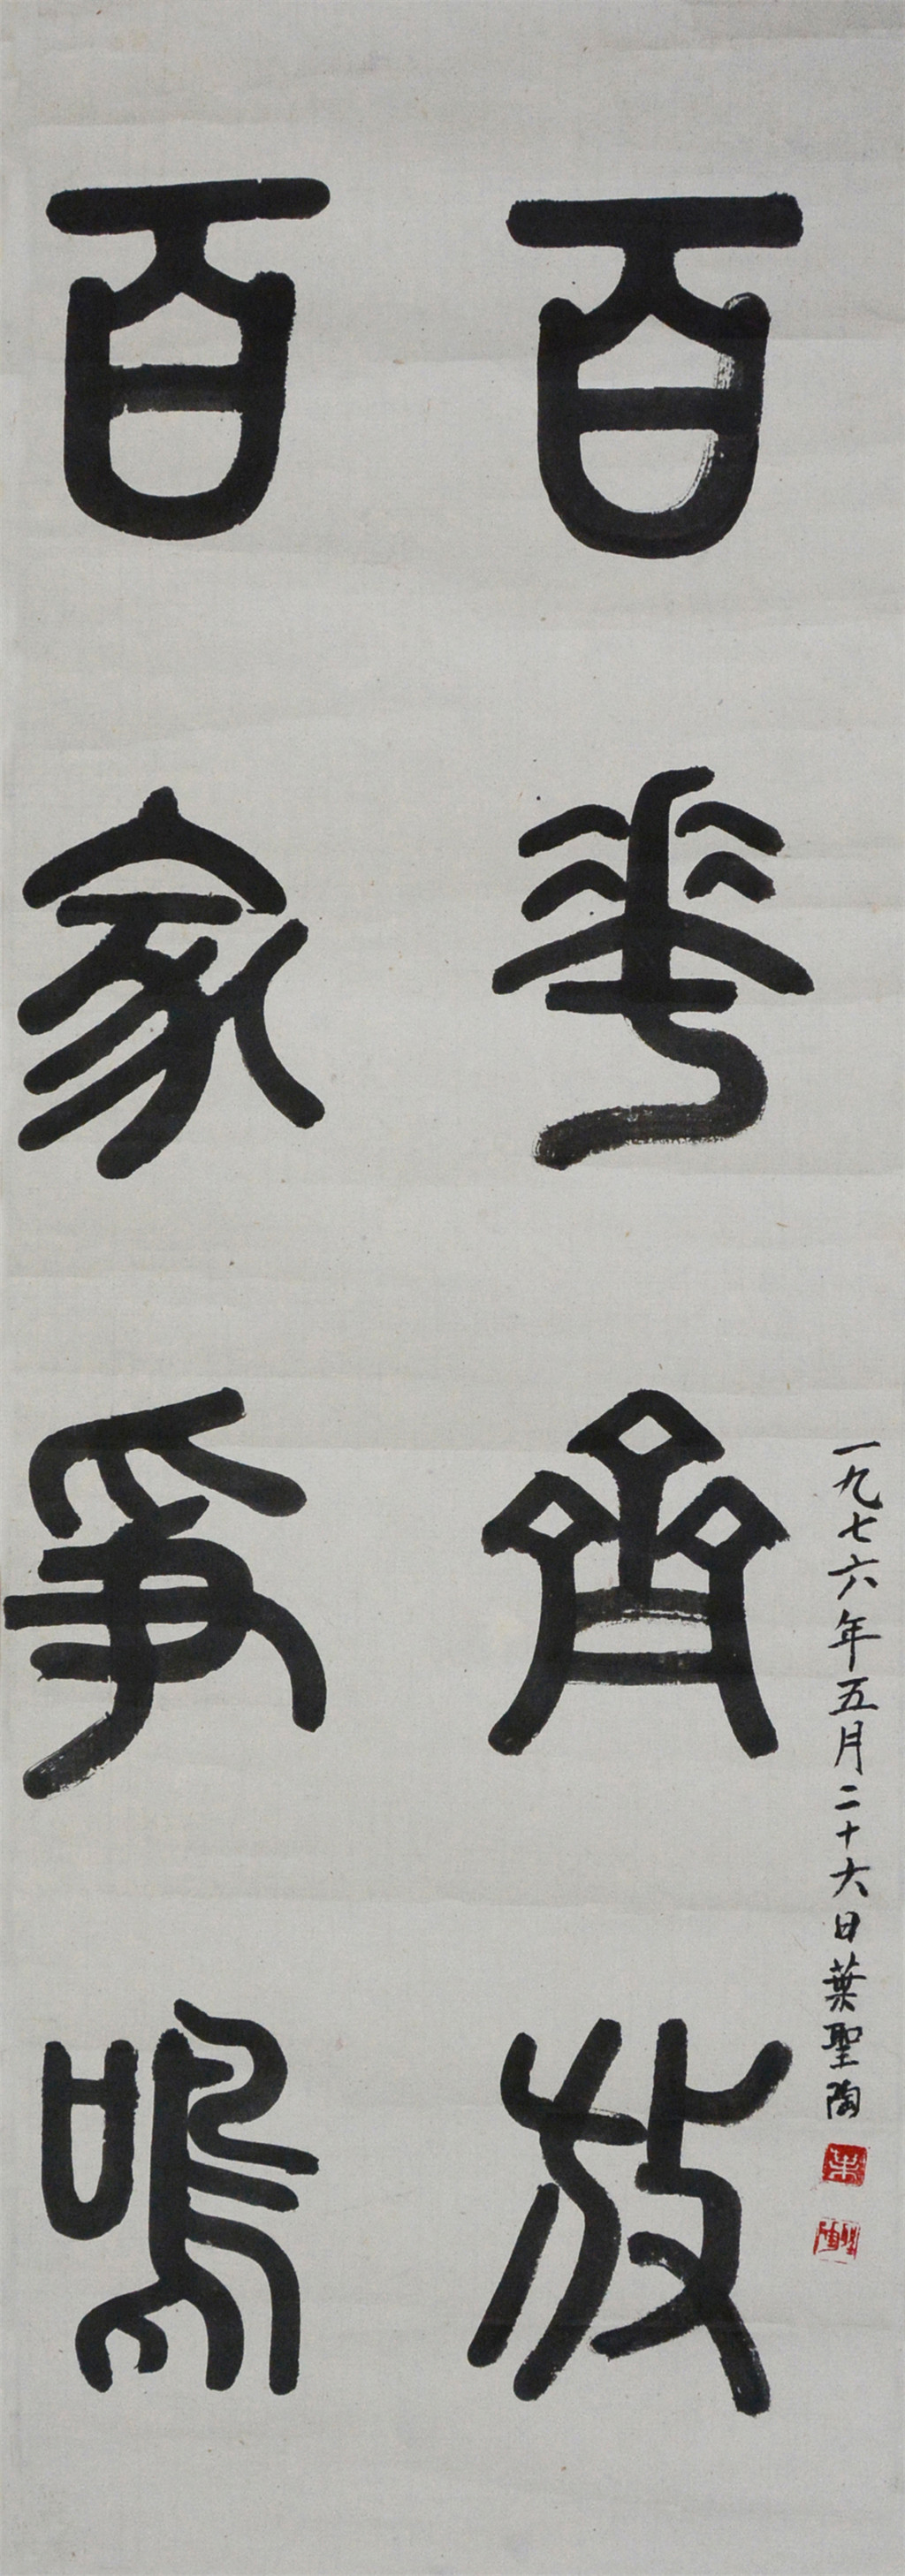 百花齊放
百家爭鳴
一九七六年五月二十六日葉聖陶